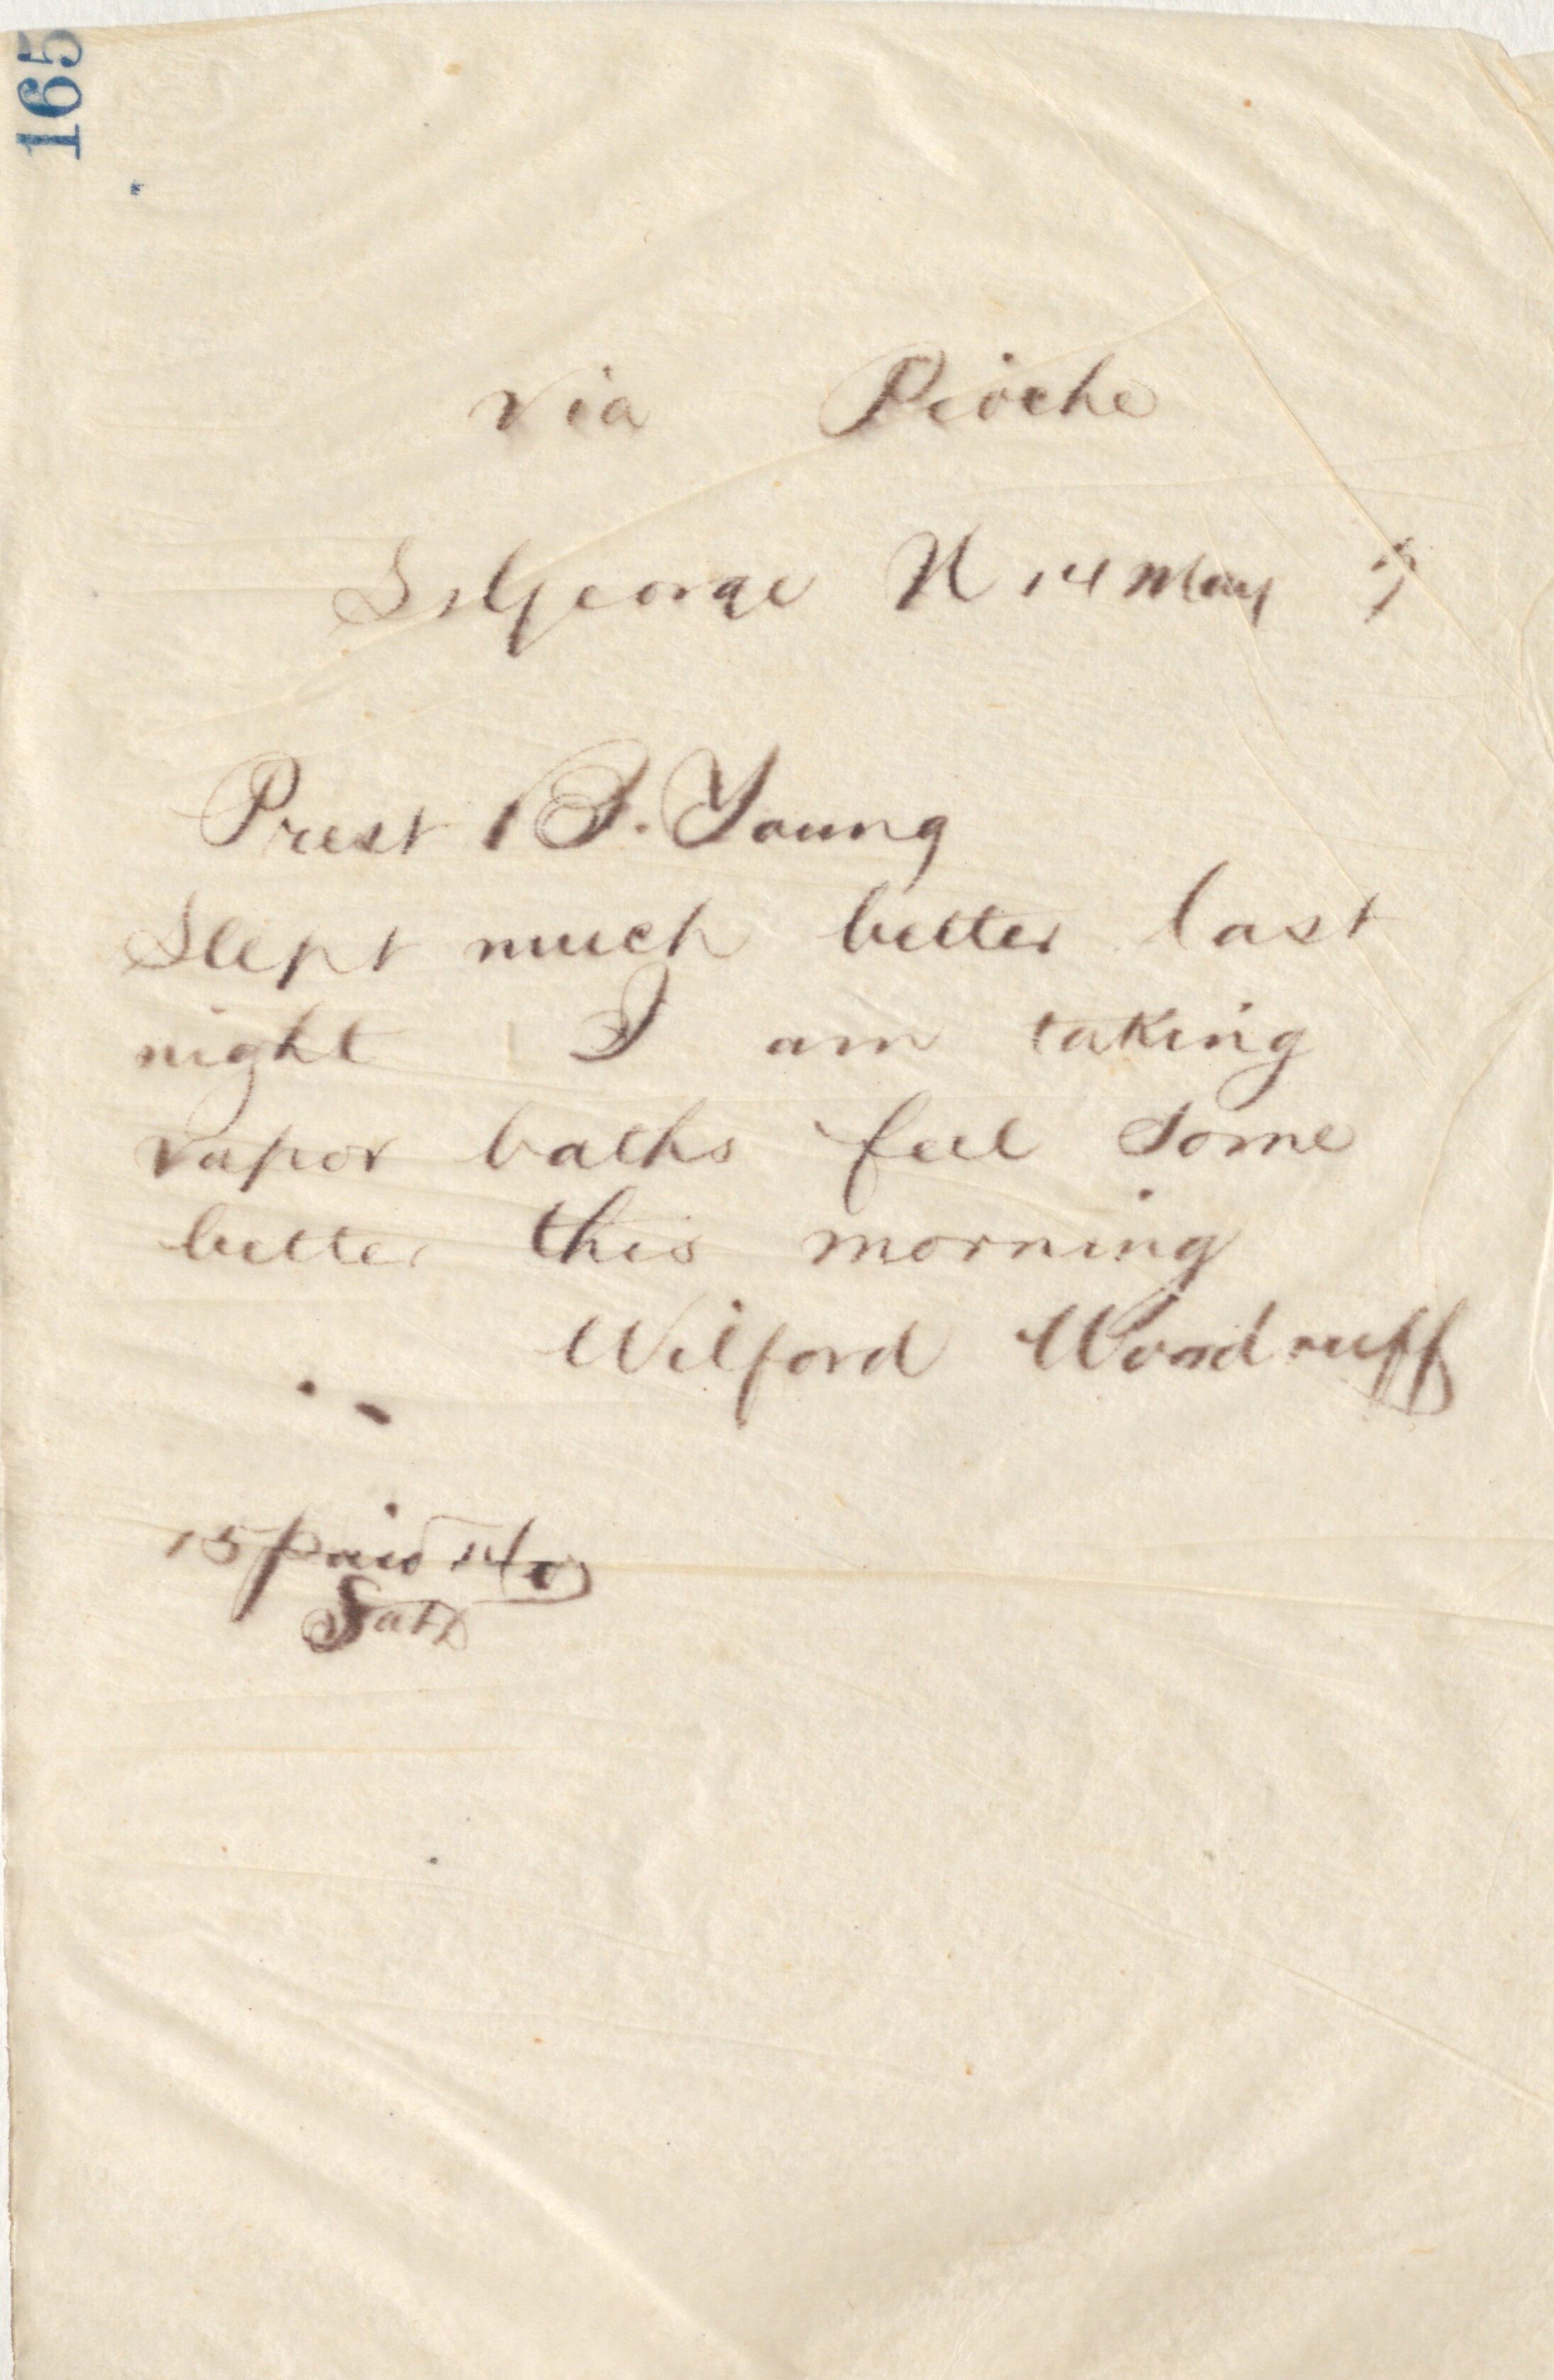 165
Via Pioche
St George U 14 May 7
Prest B. Young
Slept much better last
night I am taking
vapor baths feel some
better this morning
Wilford Woodruff
15 paid